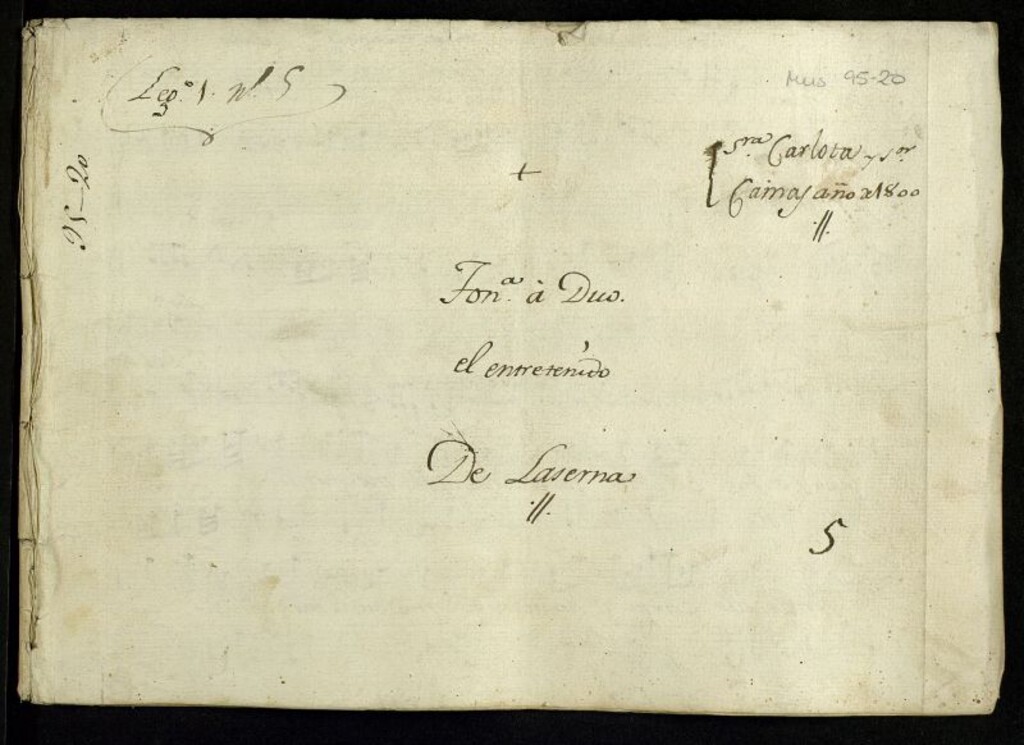 Leg.º 1. nº. 5
Mus 95-20
95-20
Sra. Carlota y Sor.
Camas año de 1800
+
Ton.ª à Duo.
el entretenido
De Laserna
5